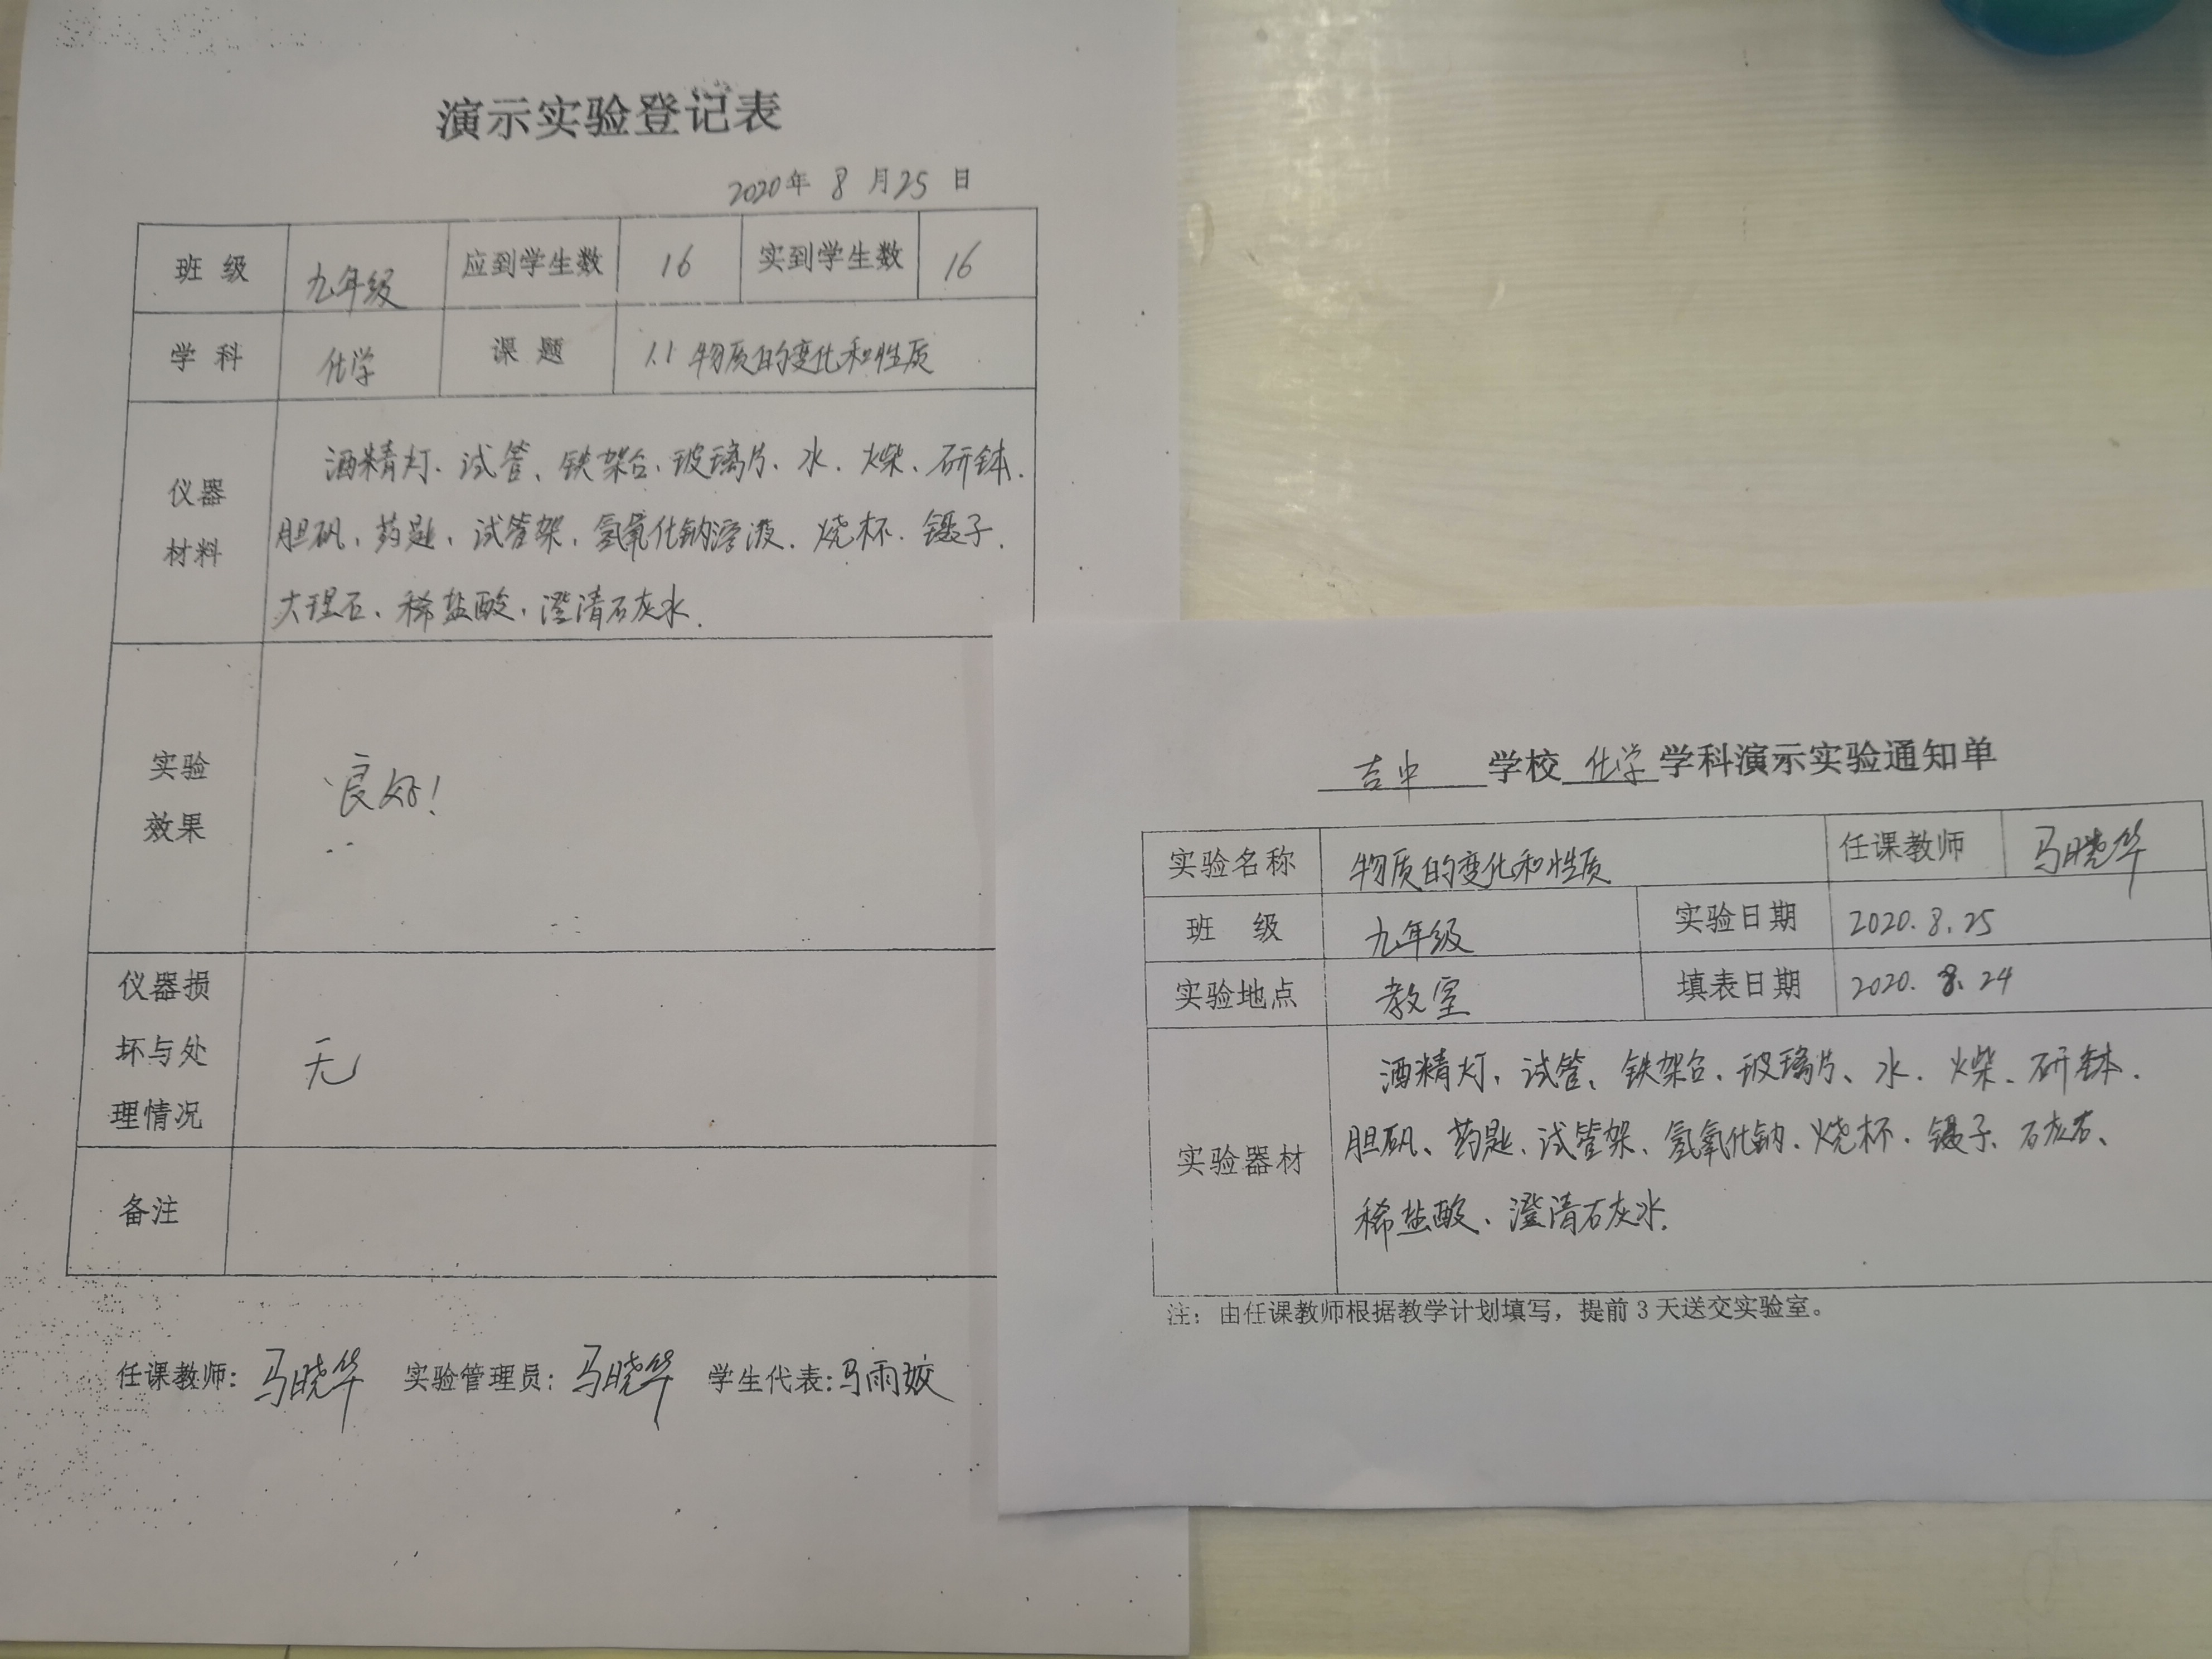 演示实验登记表
2020年 8 月25 日
班 级 九年级 应到学生数 16 实到学生数 16
学 科 化学 课 题 1.1 物质的变化和性质
仪器
材料
酒精灯、试管、铁架台、玻璃片、水、火柴、研钵、
胆矾、药匙、试管架、氢氧化钠溶液、烧杯、镊子、
大理石、稀盐酸、澄清石灰水.
实验
效果
良好!
仪器损
坏与处
理情况
无
备注
任课教师: 马晓华 实验管理员: 马晓华 学生代表:马雨姣
吉中 学校 化学 学科演示实验通知单
实验名称 物质的变化和性质 任课教师 马晓华
班 级 九年级 实验日期 2020.8.25
实验地点 教室 填表日期 2020.8.24
实验器材
酒精灯、试管、铁架台、玻璃片、水、火柴、研钵、
胆矾、药匙、试管架、氢氧化钠、烧杯、镊子、石灰石、
稀盐酸、澄清石灰水.
注：由任课教师根据教学计划填写，提前 3 天送交实验室。